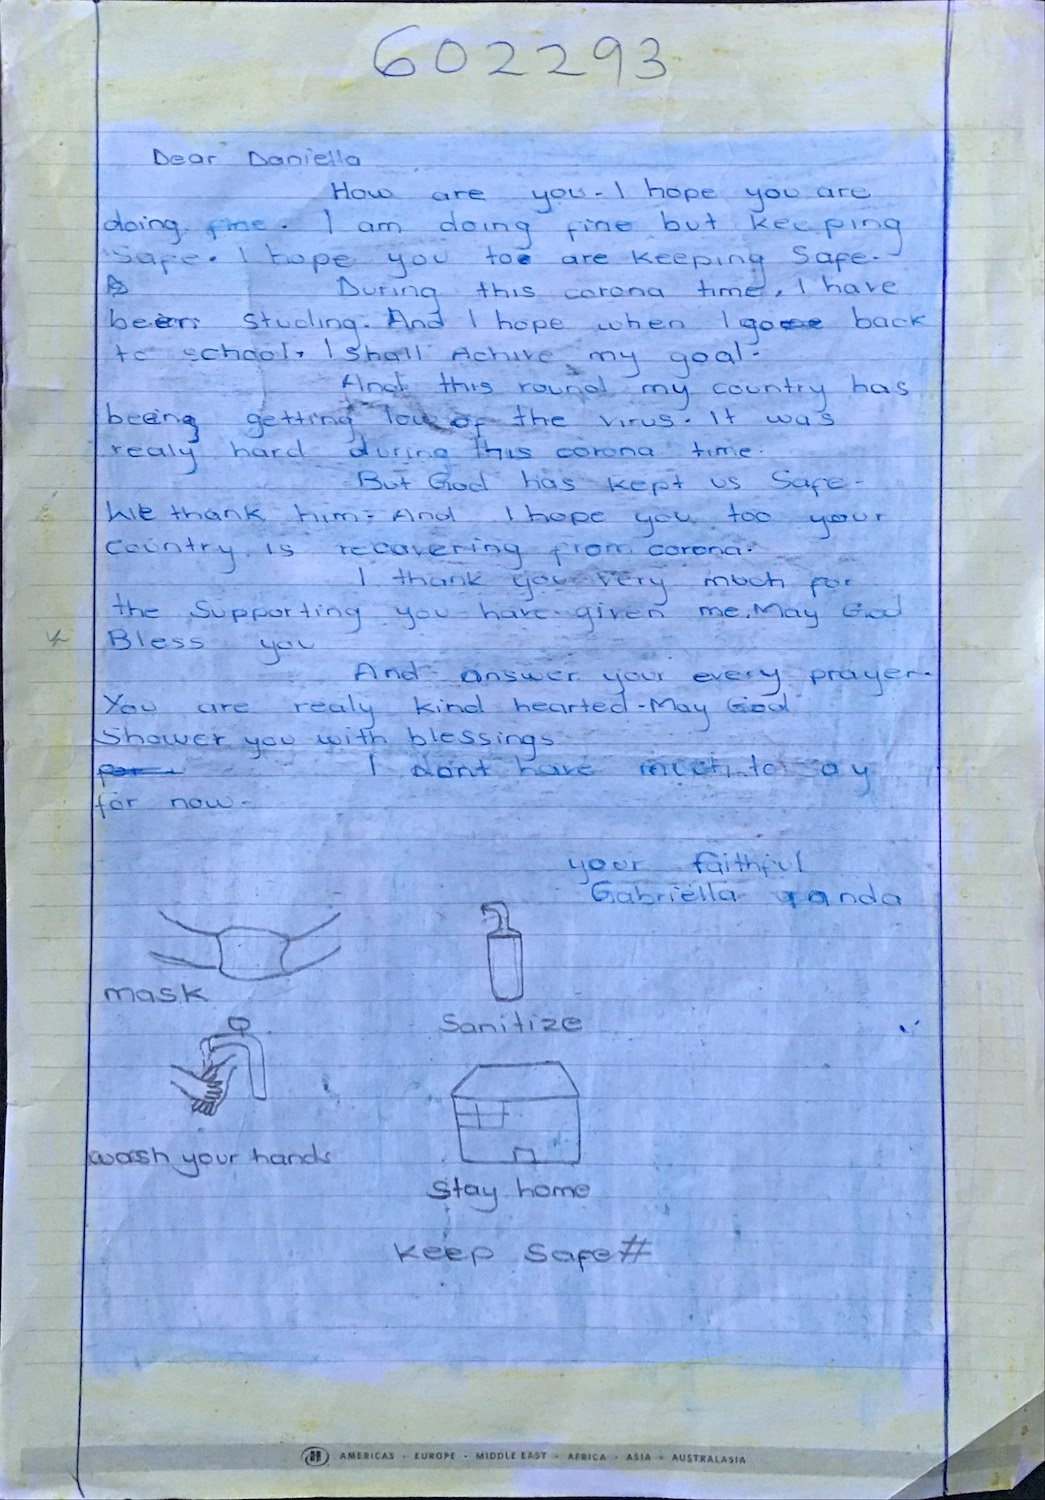 602293
Dear Daniella
How are you. I hope you are
doing fine. I am doing fine but keeping
Safe. I hope you too are keeping Safe.
During this corona time, I have
been studing. And I hope when I goee back
to school, I shall Achive my goal.
And this round my country has
being getting low of the virus. It was
realy hard during this corona time.
But God has kept us Safe.
We thank him. And I hope you too your
country is recovering from corona.
I thank you very much for
the Supporting you have given me. May God
Bless you
And answer your every prayer.
You are realy kind hearted. May God
Shower you with blessings
I dont have much to say
for now.
your faithful
Gabriella
mask
Sanitize
wash your hands
Stay home
keep Safe#
AMERICAS · EUROPE · MIDDLE EAST · AFRICA · ASIA · AUSTRALASIA